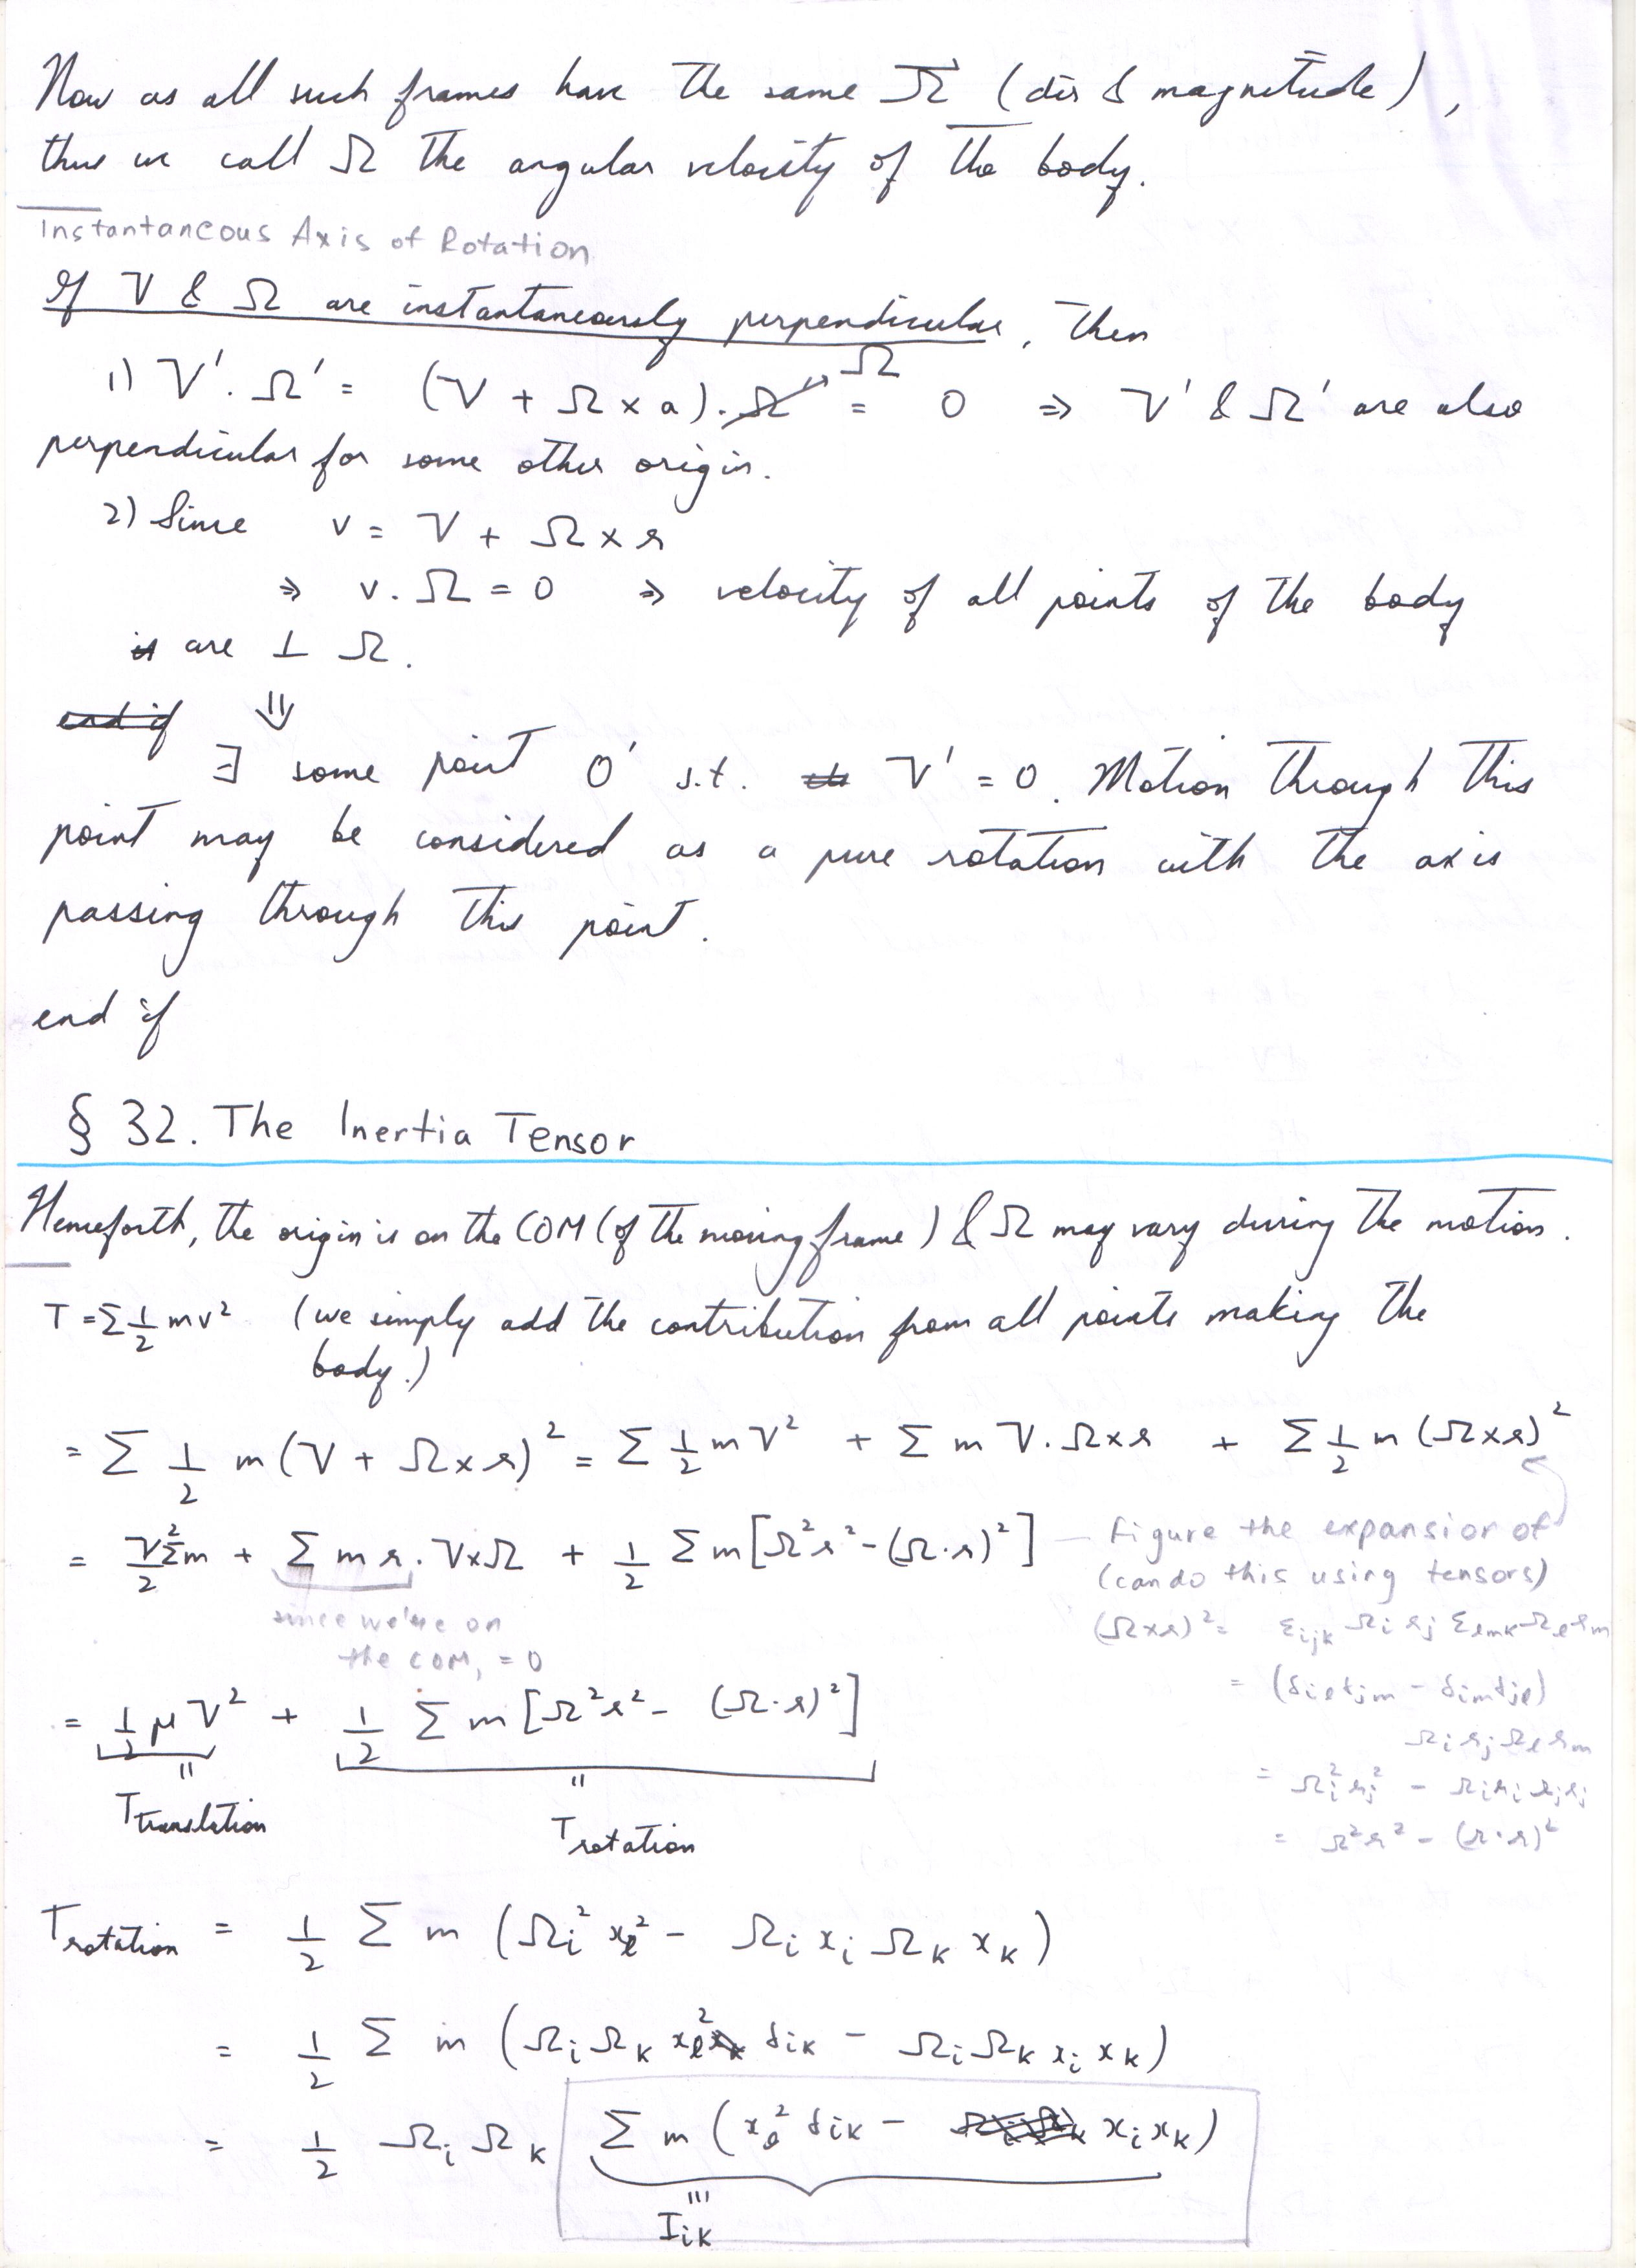 Now as all such frames have the same Ω (dir & magnitude),
thus we call Ω the angular velocity of the body.
Instantaneous Axis of Rotation
If V & Ω are instantaneously perpendicular, then
1) V'. Ω' = (V + Ω x a). Ω = 0 ⇒ V' & Ω' are also
perpendicular for some other origin.
2) Since v = V + Ω x r
⇒ v. Ω = 0 ⇒ velocity of all points of the body
are ⊥ Ω.
⇓
∃ some point O' s.t. V' = 0. Motion through this
point may be considered as a pure rotation with the axis
passing through this point.
end if
§ 32. The Inertia Tensor
Henceforth, the origin is on the COM (of the moving frame) & Ω may vary during the motion.
T = Σ 1/2 mv² (we simply add the contribution from all points making the
body.)
= Σ 1/2 m (V + Ω x r)² = Σ 1/2 m V² + Σ m V. Ω x r + Σ 1/2 m (Ω x r)²
= V²/2 Σm + Σ m r. V x Ω + 1/2 Σ m [Ω²r² - (Ω·r)²] — Figure the expansion of
(can do this using tensors)
since we're on
the COM, = 0
(Ω x r)² = ε_ijk Ω_i r_j ε_lmk Ω_l r_m
= (δ_il δ_jm - δ_im δ_jl)
Ω_i r_j Ω_l r_m
= Ω_i² r_j² - Ω_i r_i Ω_j r_j
= Ω²r² - (Ω·r)²
= 1/2 μ V² + 1/2 Σ m [Ω²r² - (Ω·r)²]
T translation
T rotation
T rotation = 1/2 Σ m (Ω_i² x_l² - Ω_i x_i Ω_k x_k)
= 1/2 Σ m (Ω_i Ω_k x_l² δ_ik - Ω_i Ω_k x_i x_k)
= 1/2 Ω_i Ω_k Σ m (x_l² δ_ik - x_i x_k)
≡
I_ik